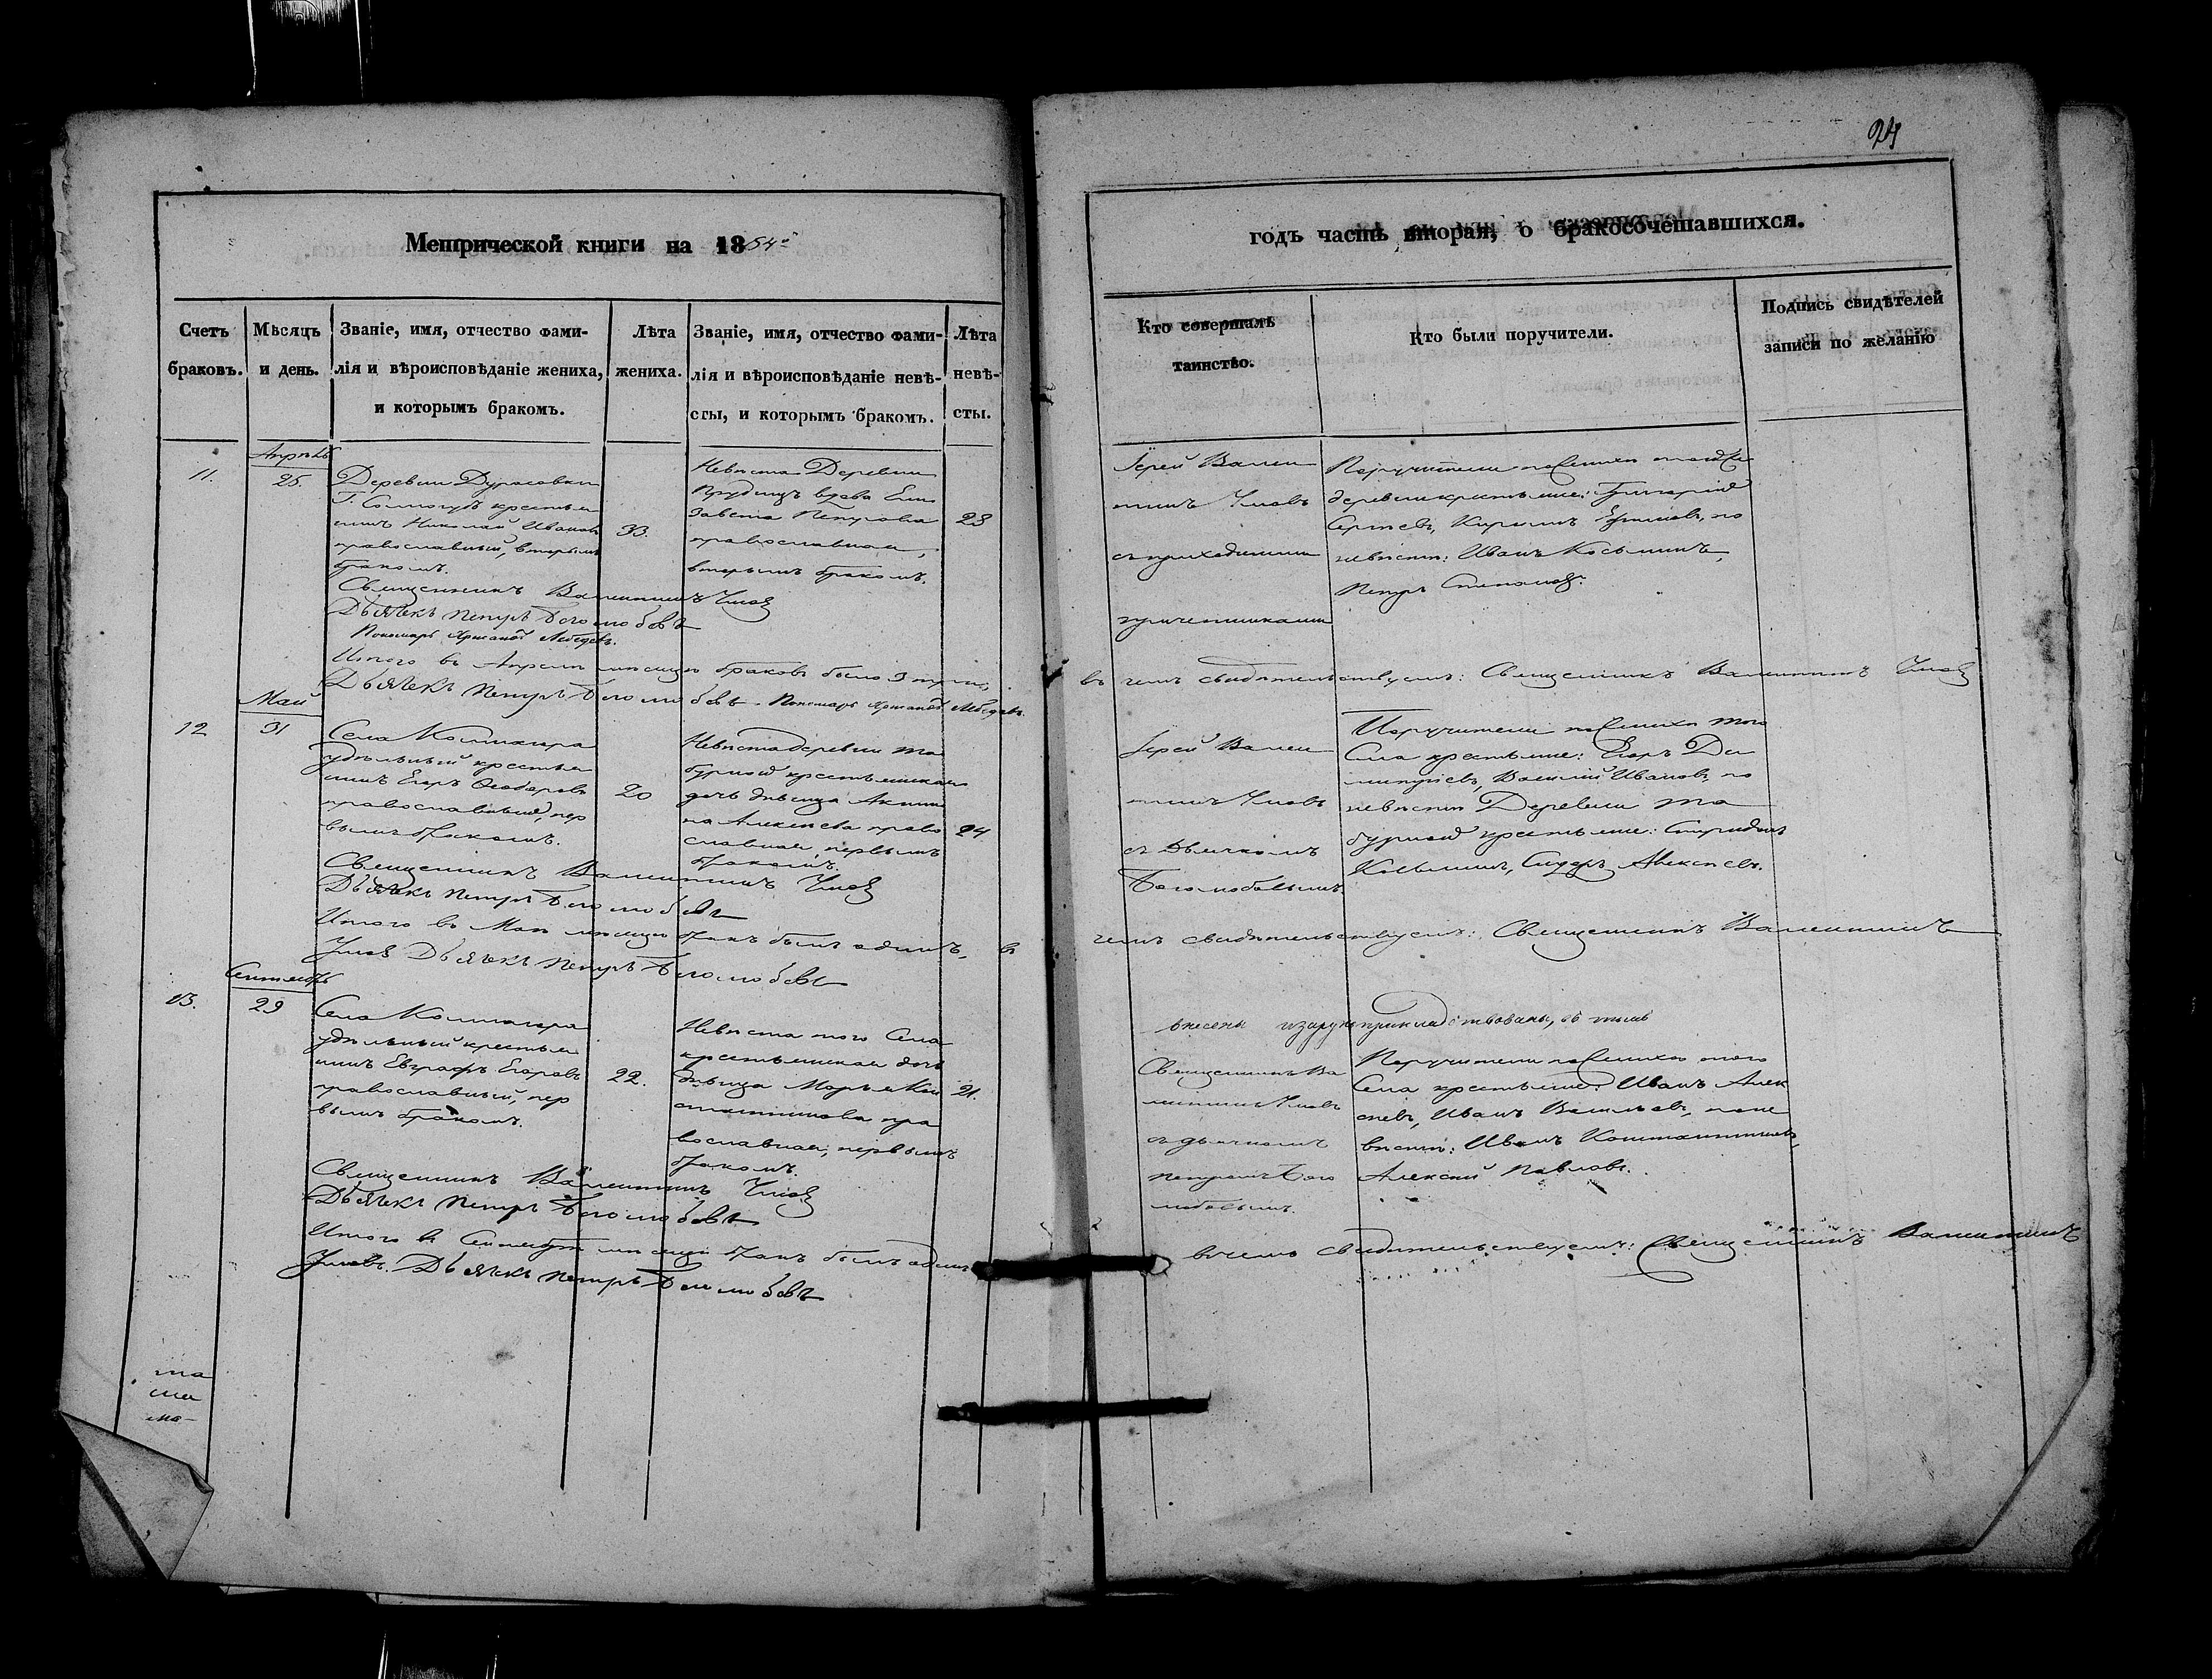 24
Метрической книги на 1854й
годъ часть вторая, о бракосочетавшихся.
Счетъ браковъ.
Мѣсяцъ и день.
Званіе, имя, отчество фами-
лія и вѣроисповѣданіе жениха,
и которымъ бракомъ.
Лѣта
жениха.
Званіе, имя, отчество фами-
лія и вѣроисповѣданіе невѣ-
сты, и которымъ бракомъ.
Лѣта
невѣ-
сты.
Кто совершалъ
таинство.
Кто были поручители.
Подпись свидѣтелей
записи по желанію
Апрѣль
11.
25.
Деревни Дурасовки
Г. крестья
нинъ Николай Ивановъ
православный, вторымъ
бракомъ.
33.
Невѣста Деревни
вдова Ели
завета Петрова
православная,
вторымъ бракомъ.
23
Іерей Вален
тинъ Умовъ
съ приходскими
причетниками
Поручители по женихѣ тойже
деревни крестьяне: Григорій
Сергѣевъ, Кирилъ Ефимовъ, по
невѣстѣ: Иванъ Косьминъ,
Петръ
Священникъ Валентинъ Умовъ
Дьячекъ Петръ Боголюбовъ
Пономарь Лебедевъ.
Итого въ Апрѣлѣ мѣсяцѣ браковъ было 3 три,
въ чемъ свидѣтельствуемъ: Священникъ Валентинъ Умовъ
Дьячекъ Петръ Боголюбовъ. Пономарь Лебедевъ.
Май
12
31
Села
удѣльный крестья
нинъ Егоръ Ѳеодоровъ
православный, пер
вымъ бракомъ.
20
Невѣста деревни Та
бурной крестьянская
дочь дѣвица Акили
на Алексѣева право
славная, первымъ
бракомъ.
24.
Іерей Вален
тинъ Умовъ
съ Дьячкомъ
Боголюбовымъ
Поручители по женихѣ того
Села крестьяне: Егоръ Ди
митріевъ, Василій Ивановъ, по
невѣстѣ Деревни Та
бурной крестьяне: Спиридонъ
Косьминъ, Сидоръ Алексѣевъ.
Священникъ Валентинъ Умовъ
Дьячекъ Петръ Боголюбовъ
Итого въ Маѣ мѣсяцѣ бракъ былъ одинъ, въ
чемъ свидѣтельствуемъ: Священникъ Валентинъ
Умовъ Дьячекъ Петръ Боголюбовъ
Сентябрь
13.
29
Села
удѣльный крестья
нинъ Евграфъ Егоровъ
православный, пер
вымъ бракомъ.
22.
Невѣста того Села
крестьянская дочь
дѣвица Марья Кон
стантинова пра
вославная, первымъ
бракомъ.
21.
внесены
Священникъ Ва
лентинъ Умовъ
съ дьячкомъ
Петромъ Бого
любовымъ.
Поручители по женихѣ того
Села крестьяне: Иванъ Алек
сѣевъ, Иванъ Васильевъ, по не
вѣстѣ: Иванъ Константиновъ,
Алексѣй Павловъ.
Священникъ Валентинъ Умовъ
Дьячекъ Петръ Боголюбовъ
Итого въ Сентябрѣ мѣсяцѣ бракъ былъ одинъ
въ чемъ свидѣтельствуемъ: Священникъ Валентинъ
Умовъ. Дьячекъ Петръ Боголюбовъ